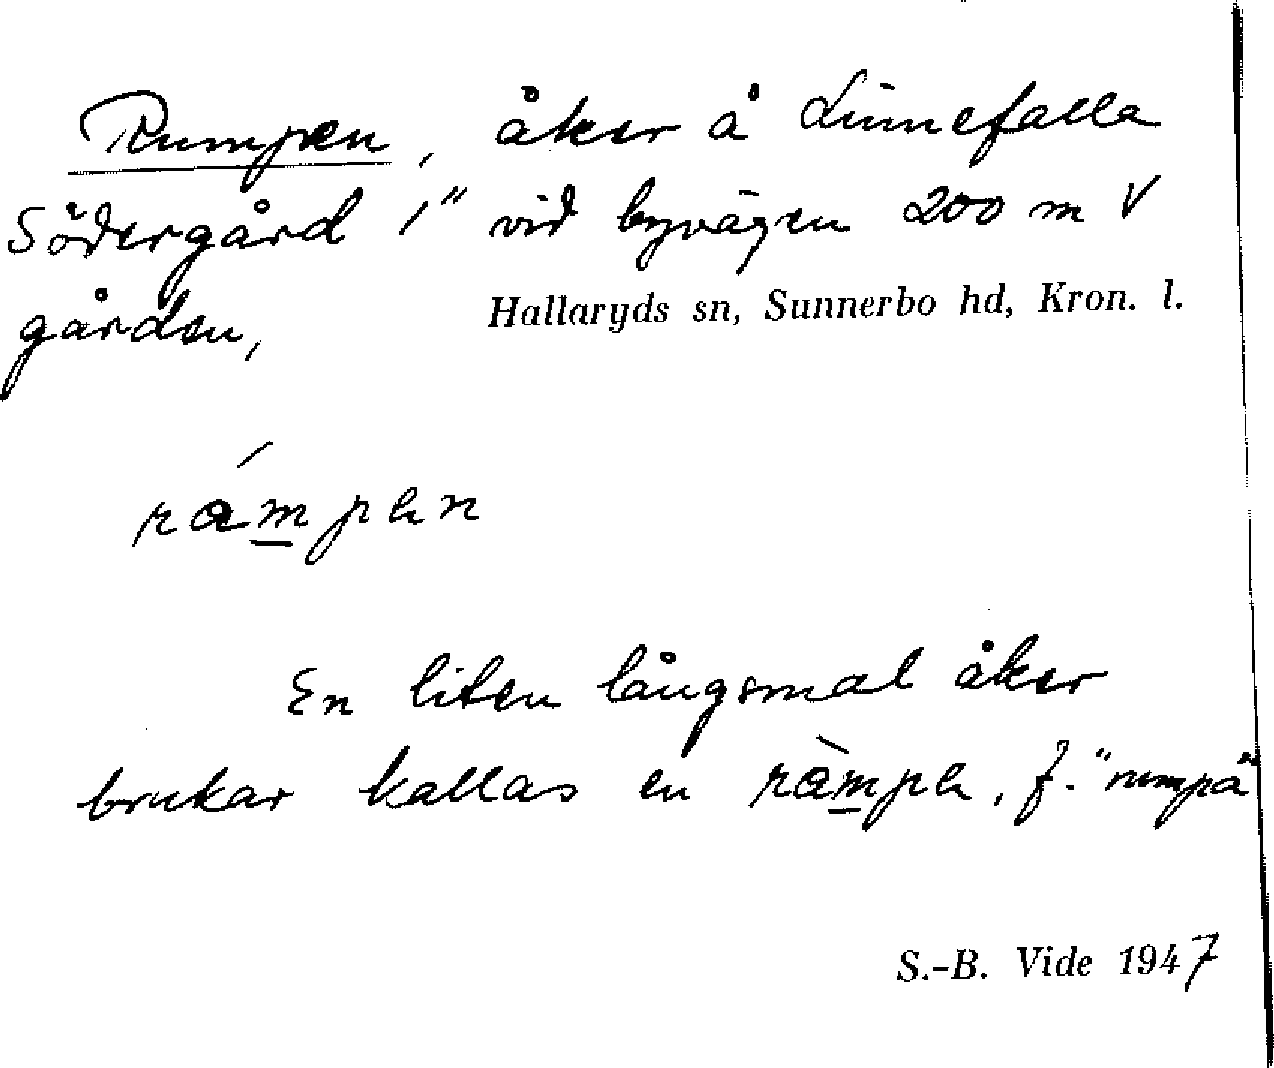 Rumpen, åker å Linnefalla
Södergård 1" vid byvägen 200 m V
gården,
Hallaryds sn, Sunnerbo hd, Kron. l.
rámpen
En liten långsmal åker
brukar kallas en ràmpa, f. "rumpa"
S.-B. Vide 1947